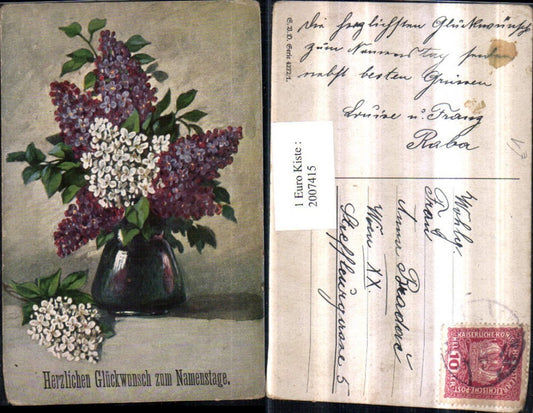 Herzlichen Glückwunsch zum Namenstage.
Die herzlichsten Glückwünsche
zum Namenstag senden
nebst besten Grüssen
Louise u. Franz
Raba
S.V.D. Serie 4272/1.
1 Euro Kiste :
2007415
Wohlg.
Frau
Anna
Wien XX.
Streffleurgasse 5
10
KAISERLICHE KÖN.